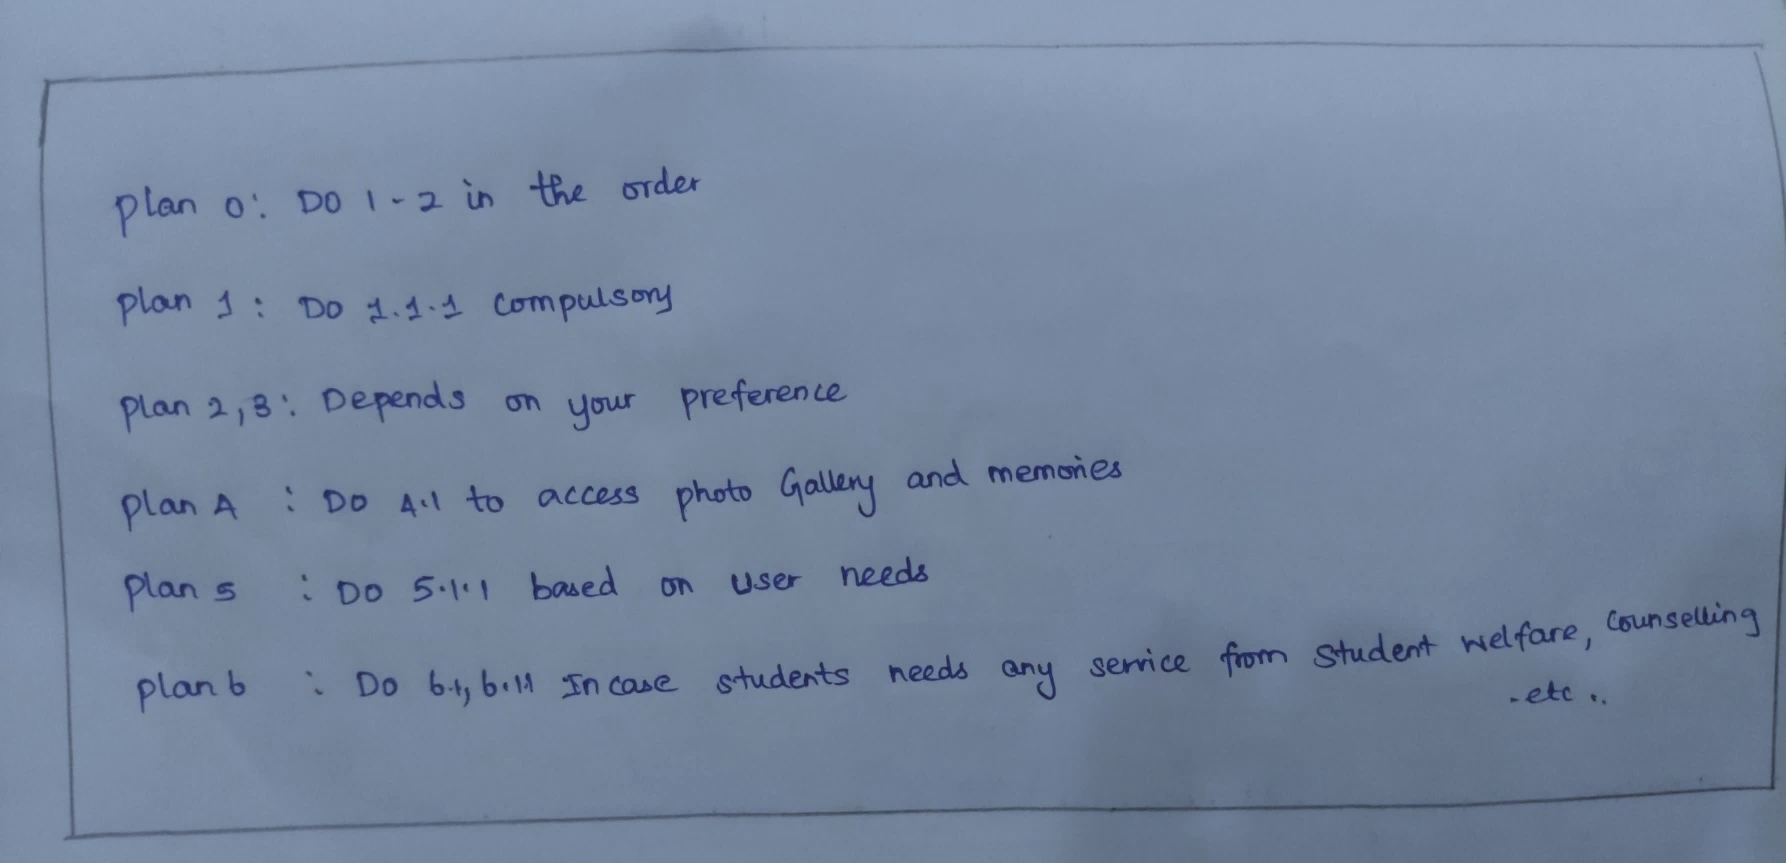 plan 0: DO 1-2 in the order
plan 1: DO 1.1.1 Compulsory
plan 2,3: Depends on your preference
plan 4: DO 4.1 to access photo Gallery and memories
plan 5: DO 5.1.1 based on user needs
plan 6: DO 6.1, 6.11 Incase students needs any service from student welfare, Counselling
-etc ..